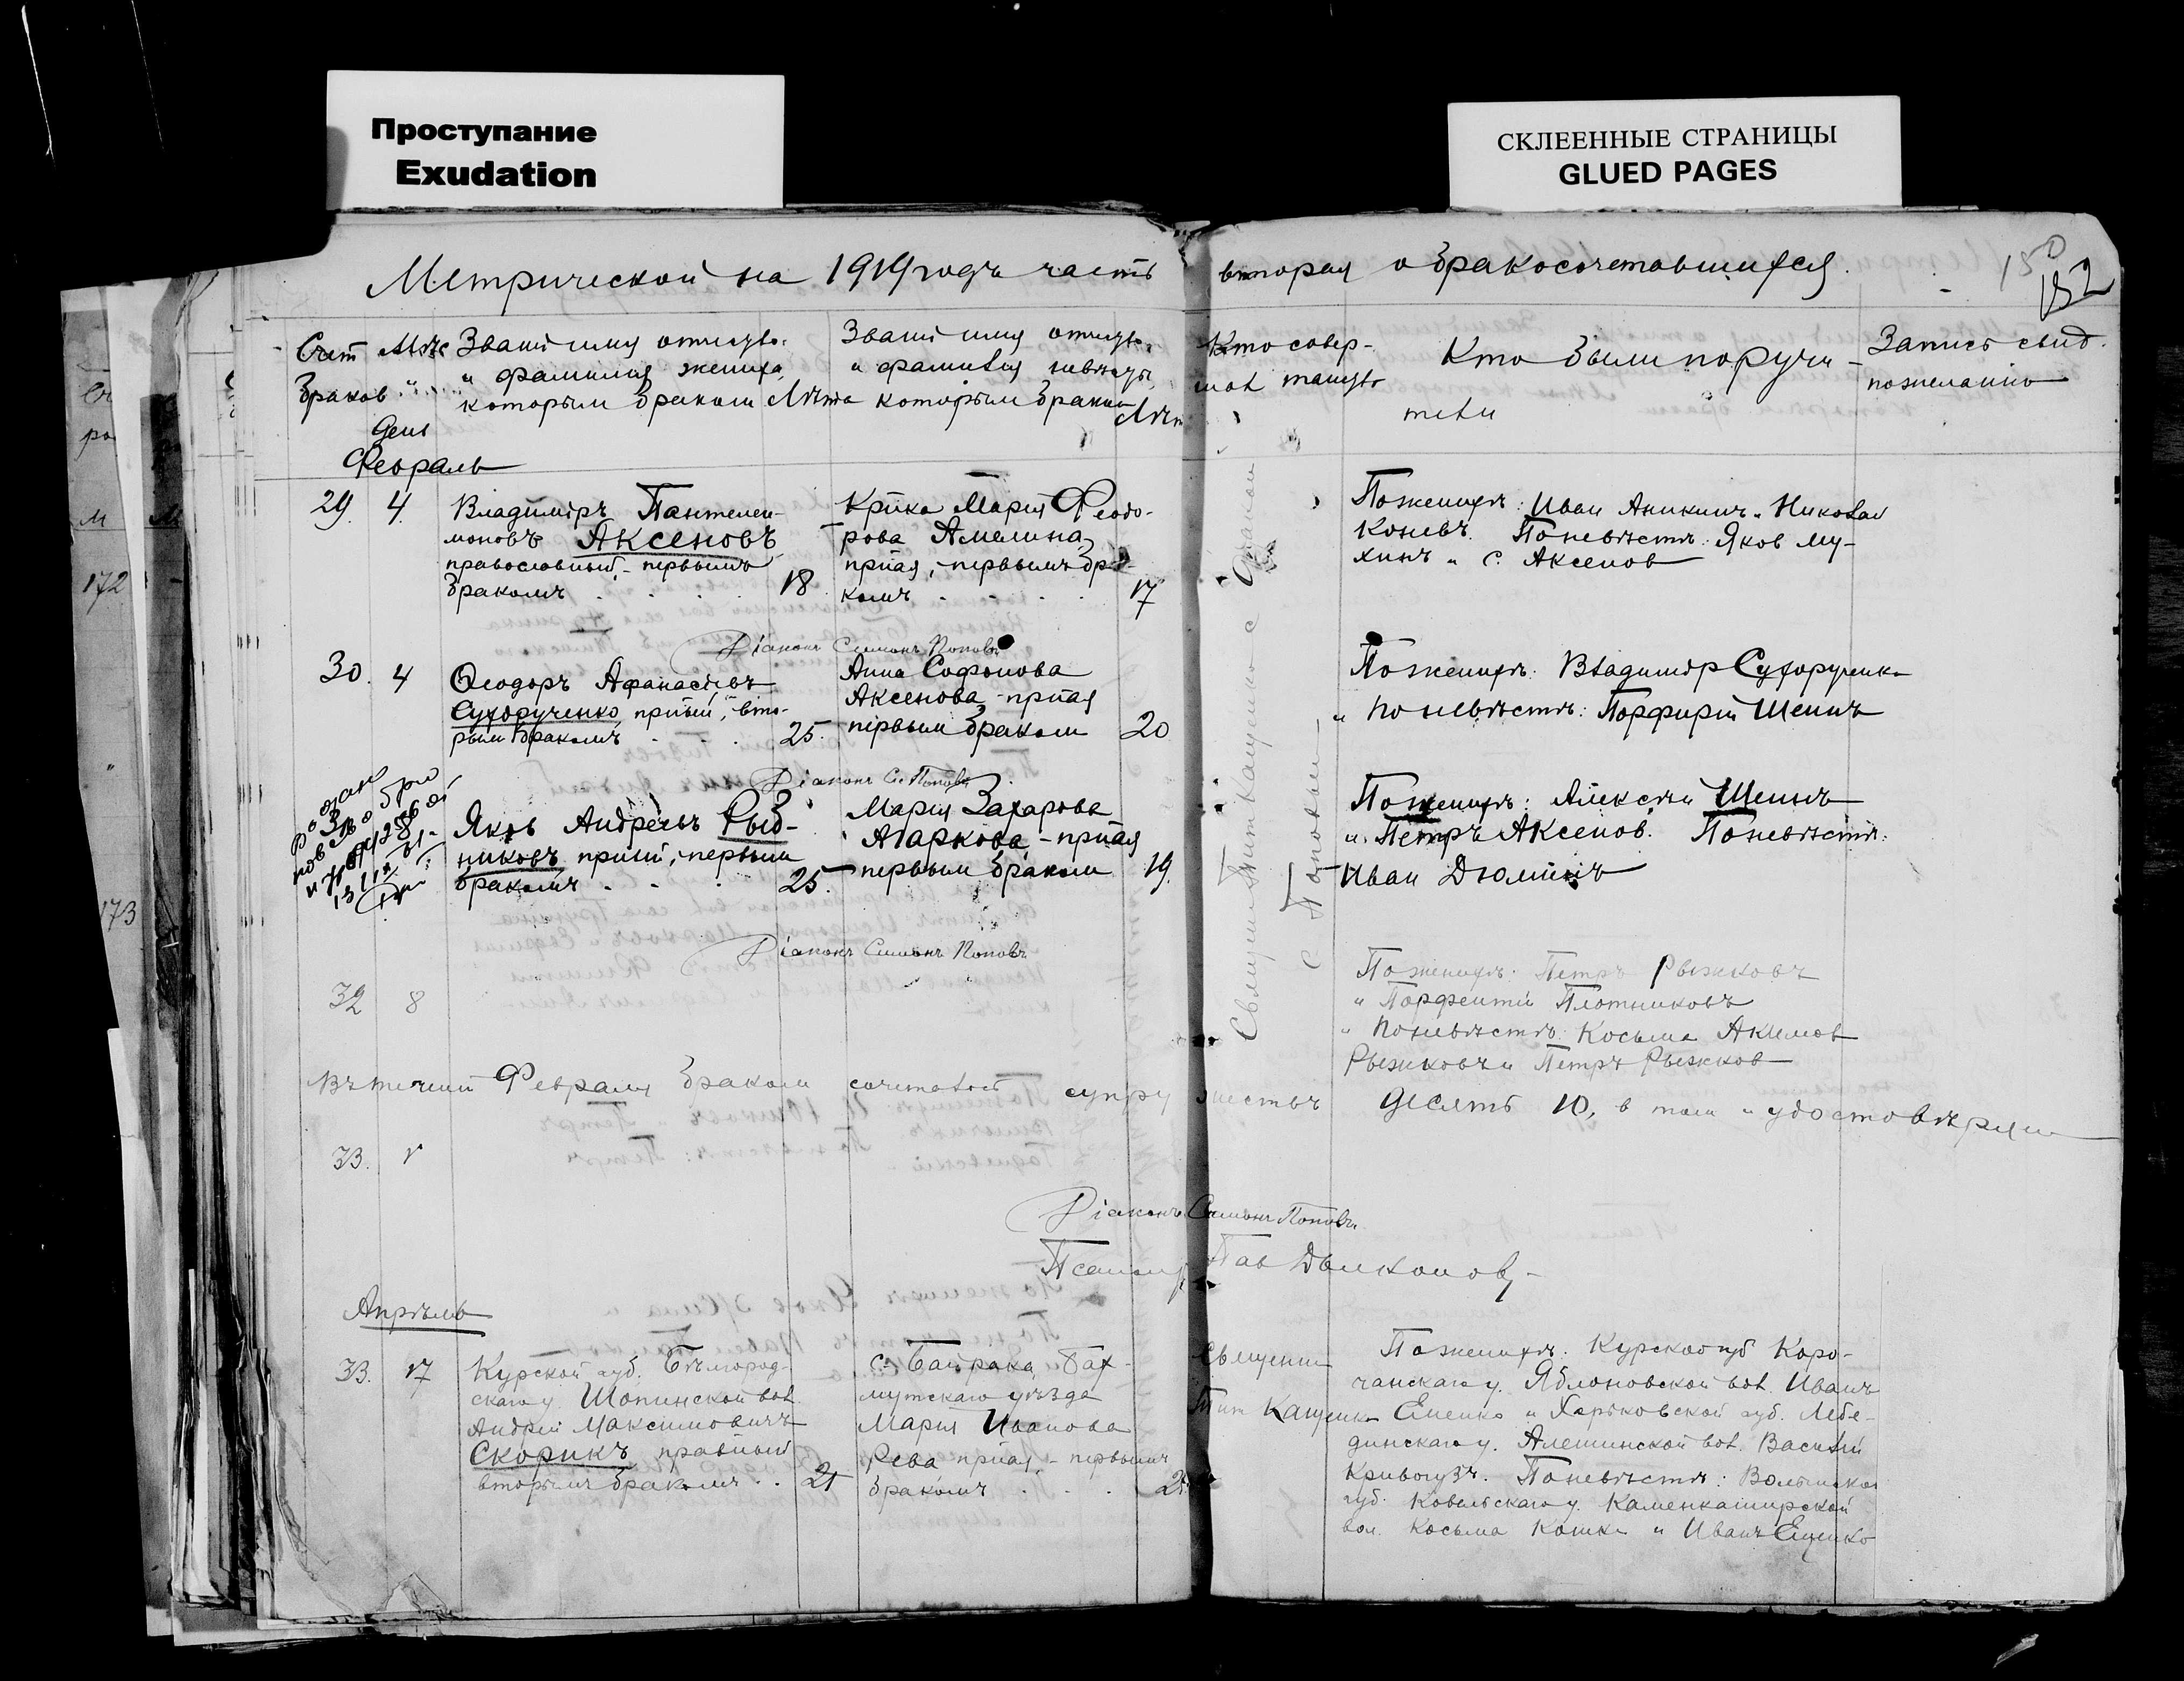 Проступание
Exudation
СКЛЕЕННЫЕ СТРАНИЦЫ
GLUED PAGES
Метрической на 1919 годъ часть вторая о бракосочетавшихся.
150
152
Счет браков
Мѣс
День
Званіе имя отчество
и фамилия жениха,
которым браком
Лѣта
Званіе имя отчество,
и фамилия невѣсты,
которым браком
Лѣт
Кто совер-
шал таинство
Кто были поручи-
тели
Запись свид.
по желанию
Февраль
29. 4.
Владиміръ Пантелей-
моновъ Аксеновъ
православный - первымъ
бракомъ . . . . 18
Кр-ка Марія Феодо-
рова Амелина,
пр-ная, - первымъ бра-
комъ . . . . 17
По женихѣ: Иван Аникинъ и Николай
Коневъ. По невѣстѣ: Яков Му-
хинъ и С. Аксенов
Діаконъ Симонъ Поповъ
30. 4
Ѳеодоръ Афанасіевъ
Сухорученко, пр-ный, вто-
рым бракомъ . . . 25.
Анна Софонова
Аксенова - пр-ная
первым браком 20
По женихѣ: Владимір Сухорученко
и по невѣстѣ: Порфирій Шеинъ
Діаконъ С. Поповъ
Яковъ Андреевъ Рыб-
никовъ пр-ный, первым
бракомъ . . . 25.
Мария Захарова
Агаркова - пр-ная
первым браком 19.
По женихѣ: Алексѣй Шеинъ
и Петръ Аксенов. По невѣстѣ:
Иван Дюминъ
Діаконъ Симонъ Поповъ
32 8
По женихѣ: Петръ Рыжковъ
и Парфентій Плотниковъ
и по невѣстѣ: Косьма Акимов
Рыжковъ и Петръ Рыжков
Священник Тит Кащенко с Діаконом
С Поповым
Въ теченіи Февраля браком сочеталось супружествъ десять 10, в том и удостовѣряем
33.
Діаконъ Симонъ Поповъ
Псаломщ Пав
Апрѣль
33. 17
Курской губ. Бѣлгород-
скаго у. Шопинской вол.
Андрей Максимовичъ
Скорикъ, прав-ный
вторымъ бракомъ . .
с. Байрака, Бах-
мутскаго уѣзда
Мария Иванова
Рева пр-ная, - первымъ
бракомъ . . .
Священник
Тит Кащенко
По женихѣ: Курской губ Коро-
чанскаго у. Яблоновской вол. Иванъ
Еценко и Харьковской губ. Лебе-
динскаго у. Алешинской вол. Василий
Кривогузъ. По невѣстѣ: Волынской
губ. Ковельскаго у. Каменкаширской
вол. Косьма Кошка и Иванъ Еценко